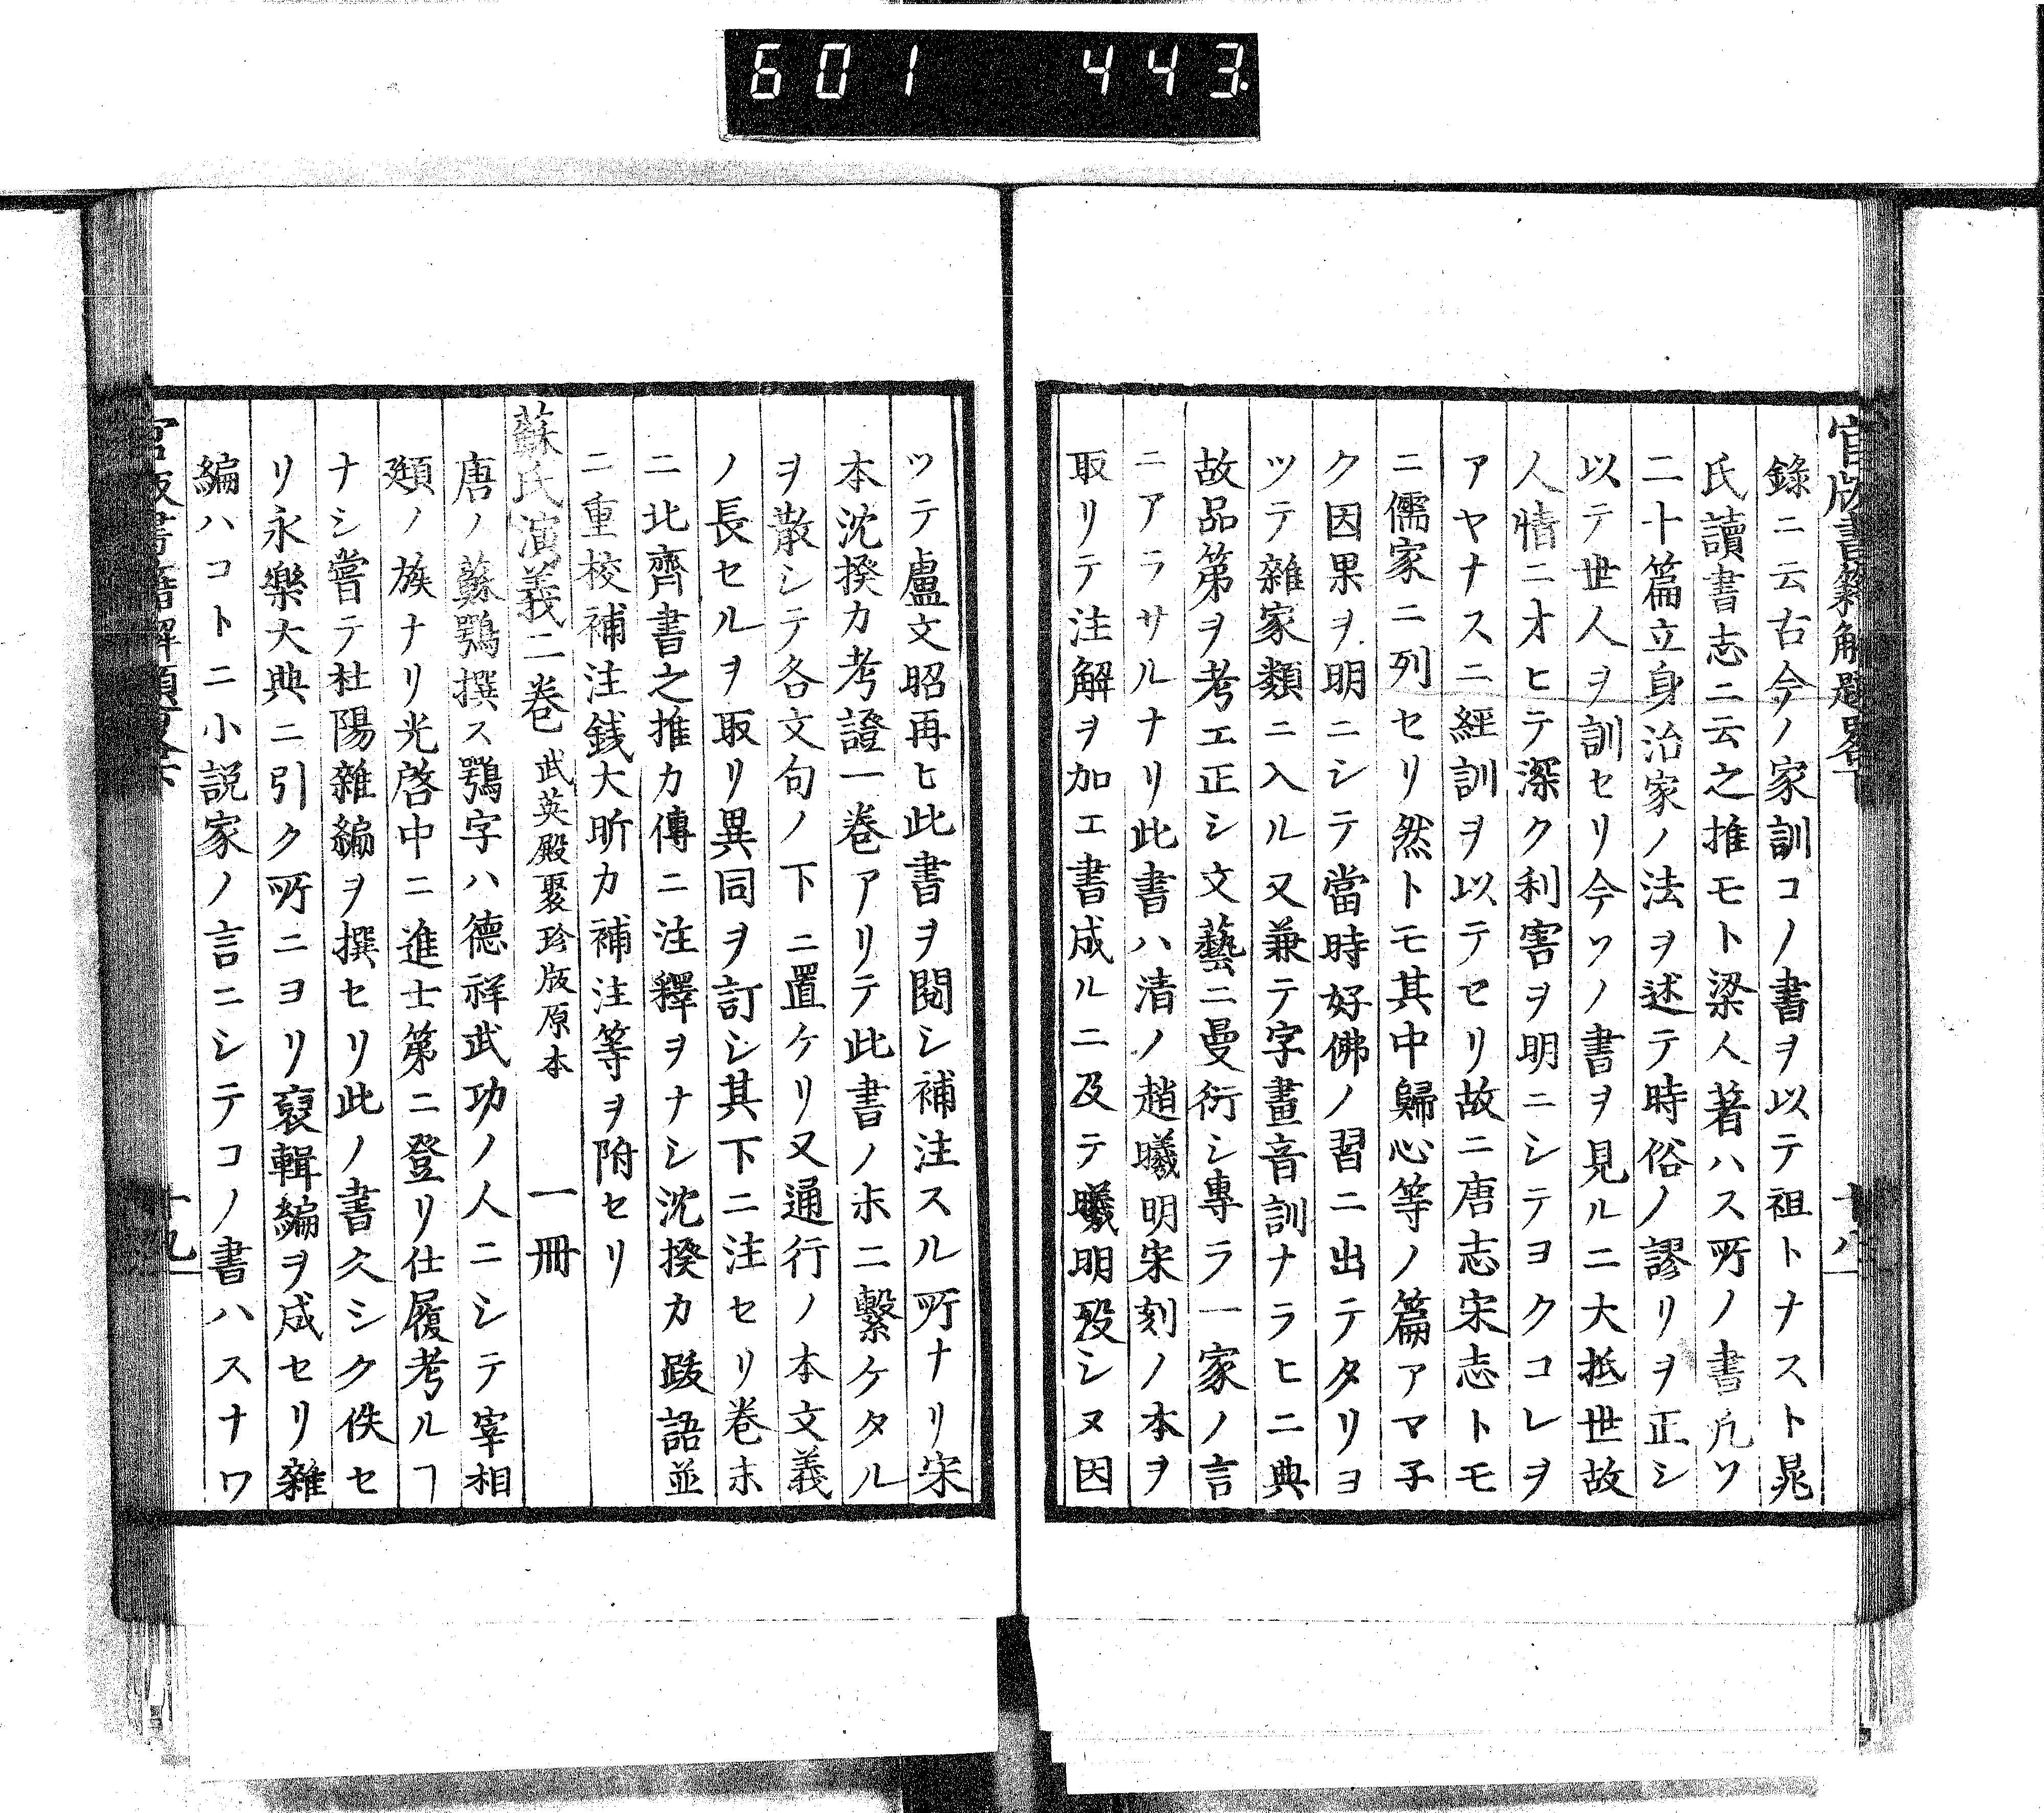 601 443
官版書籍解題略下
十八
錄ニ云古今ノ家訓コノ書ヲ以テ祖トナスト晁
氏讀書志ニ云之推モト梁人著ハス所ノ書凡ソ
二十篇立身治家ノ法ヲ述テ時俗ノ謬リヲ正シ
以テ世人ヲ訓セリ今ソノ書ヲ見ルニ大抵世故
人情ニオヒテ深ク利害ヲ明ニシテヨクコレヲ
アヤナスニ經訓ヲ以テセリ故ニ唐志宋志トモ
ニ儒家ニ列セリ然トモ其中歸心等ノ篇アマ子
ク因果ヲ明ニシテ當時好佛ノ習ニ出テタリヨ
ツテ雜家類ニ入ル又兼テ字畫音訓ナラヒニ典
故品第ヲ考エ正シ文藝ニ曼衍シ專ラ一家ノ言
ニアラサルナリ此書ハ清ノ趙曦明宋刻ノ本ヲ
取リテ注解ヲ加エ書成ルニ及テ曦明歿シヌ因
ツテ盧文昭再ヒ此書ヲ閲シ補注スル所ナリ宋
本沈揆カ考證一卷アリテ此書ノ末ニ繫ケタル
ヲ散シテ各文句ノ下ニ置ケリ又通行ノ本文義
ノ長セルヲ取リ異同ヲ訂シ其下ニ注セリ卷末
ニ北齊書之推カ傳ニ注釋ヲナシ沈揆カ跋語並
ニ重校補注錢大昕カ補注等ヲ附セリ
蘇氏演義二卷 武英殿聚珍版原本 一冊
唐ノ蘇鶚撰ス鶚字ハ德祥武功ノ人ニシテ宰相
頲ノ族ナリ光啓中ニ進士第ニ登リ仕履考ルヿ
ナシ嘗テ杜陽雜編ヲ撰セリ此ノ書久シク佚セ
リ永樂大典ニ引ク所ニヨリ裒輯編ヲ成セリ雜
編ハコトニ小說家ノ言ニシテコノ書ハスナワ
官版書籍解題畧下
十九